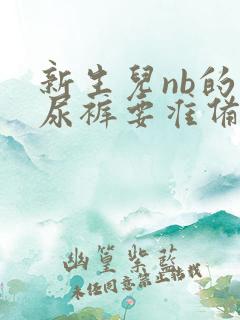 新生兒nb的
尿裤要准备
幽篁紫藍
未经同意禁止转载